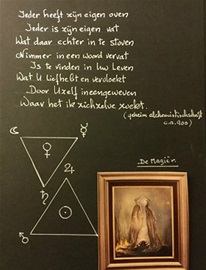 Ieder heeft zijn eigen oven
Ieder is zijn eigen vat
Wat daar echter in te stoven
Nimmer in een woord vervat
Is te vinden in Uw Leven
Wat U liefhebt en vervloekt
Door Uzelf ineengeweven
Waar het zichzelve zoekt.
(geheim alchemistisch schrift
c.a. 900)
De Magiër